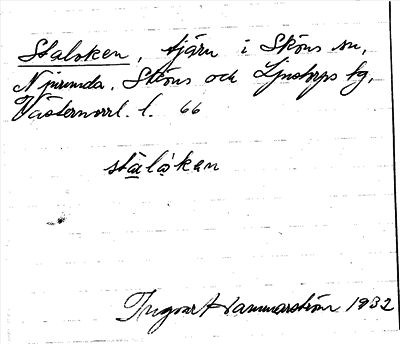 Staloken, tjärn i Sköns sn,
Njurunda, Sköns och Ljustorps tg,
Västernorrl. l. 66
stålåkan
Ingvar Hammarström 1932